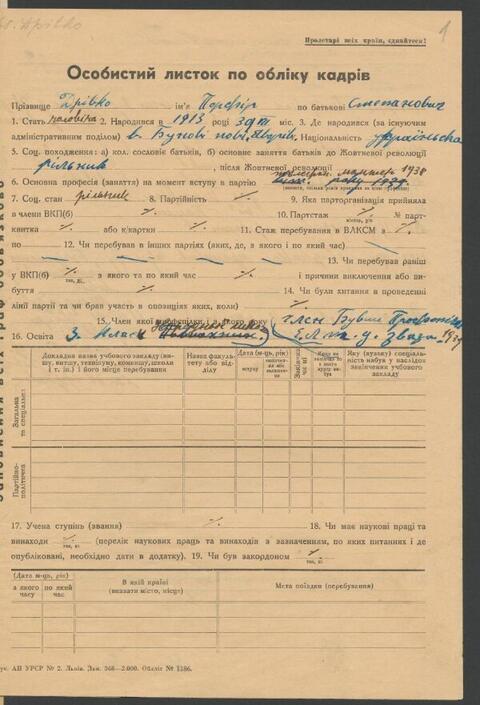 1
Пролетарі всіх країн, єднайтеся!
Особистий листок по обліку кадрів
Прізвище Дрівко ім'я Порфір по батькові Степанович
1. Стать чоловіча 2. Народився в 1913 році 30/III міс. 3. Де народився (за існуючим
адміністративним поділом) в. 4. Національність українська
5. Соц. походження: а) кол. сословіє батьків, б) основне заняття батьків до Жовтневої революції
рільник, після Жовтневої революції
6. Основна професія (заняття) на момент вступу в партію 1938
року 1939.
7. Соц. стан рільник 8. Партійність ٪ 9. Яка парторганізація прийняла
в члени ВКП(б) ٪ 10. Партстаж ٪ № парт-
квитка ٪ або к/картки ٪ 11. Стаж перебування в ВЛКСМ з ٪
по ٪ 12. Чи перебував в інших партіях (яких, де, з якого і по який час)
13. Чи перебував раніш
у ВКП(б) ٪ з якого та по який час ٪ і причини виключення або ви-
буття ٪ 14. Чи були хитання в проведенні
лінії партії та чи брав участь в опозиціях яких, коли) ٪
15. Член якої профспілки і з якого року член Бувш.
16. Освіта 3. класи 1939
Докладна назва учбового закладу (ви-
шу, витшу, технікуму, комвишу, школи
і т. ін.) і його місце перебування
Назва факуль-
тету або від-
ділу
Дата (м-ць, рік)
вступу
Закінчив чи ні
Яку (вузьку) спеціаль-
ність набув у наслідок
закінчення учбового
закладу
Загальна
та спеціальна
Партійно-
політична
17. Учена ступінь (звання) ٪ 18. Чи має наукові праці та
винаходи ٪ (перелік наукових праць та винаходів з зазначенням, по яких питаннях і де
опубліковані, необхідно дати в додатку). 19. Чи був закордоном ٪
(Дата м-ць, рік)
з якого
часу
по який
час
В якій країні
(вказати місто, місце)
Мета поїздки (перебування)
рук. АП УРСР № 2. Львів. Зам. 568—2.000. Обліт № 1386.